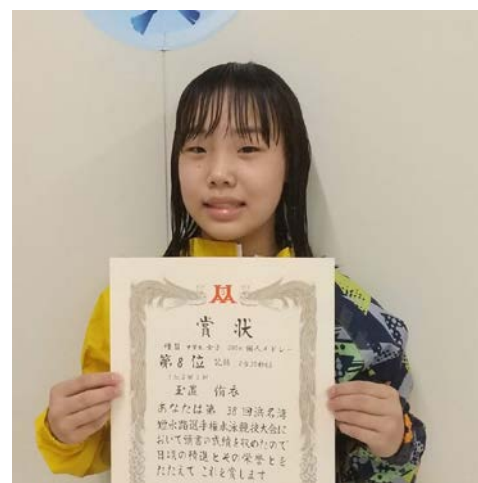 賞状
種目 中学生 女子 200m 個人メドレー
第8位 記録
玉置 侑衣
あなたは第38回浜名湾
短水路選手権水泳競技大会に
おいて頭書の成績を収めたので
日頃の精進とその栄誉とを
たたえて これを賞します